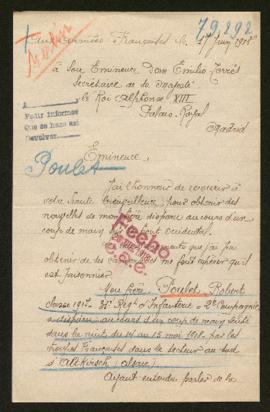 79292
Aux Armées Françaises le 17 Juin 1918
A Son Eminence Dom Emilio Torrès
Secrétaire de Sa Majesté
le Roi Alphonse XIII
Palais-Royal
Madrid
Pedir informes
Que se haga así
Devolver
Eminence,
Poulet
J'ai l'honneur de recourir à
votre haute bienveillance, pour obtenir des
nouvelles de mon frère disparu au cours d'un
coup de main front occidental.
Fecho
que j'ai pu
obtenir de me font espérer qu'il
est prisonnier.
Mon frère Poulet Robert
classe 1917. 35e Régt d'Infanterie 2e Compagnie
a disparu au cours d'un coup de main exécuté
dans la nuit du 14 au 15 mai 1918, par les
troupes Françaises dans le secteur au sud
d'Altkirch, Alsace.
Ayant entendu parler de la